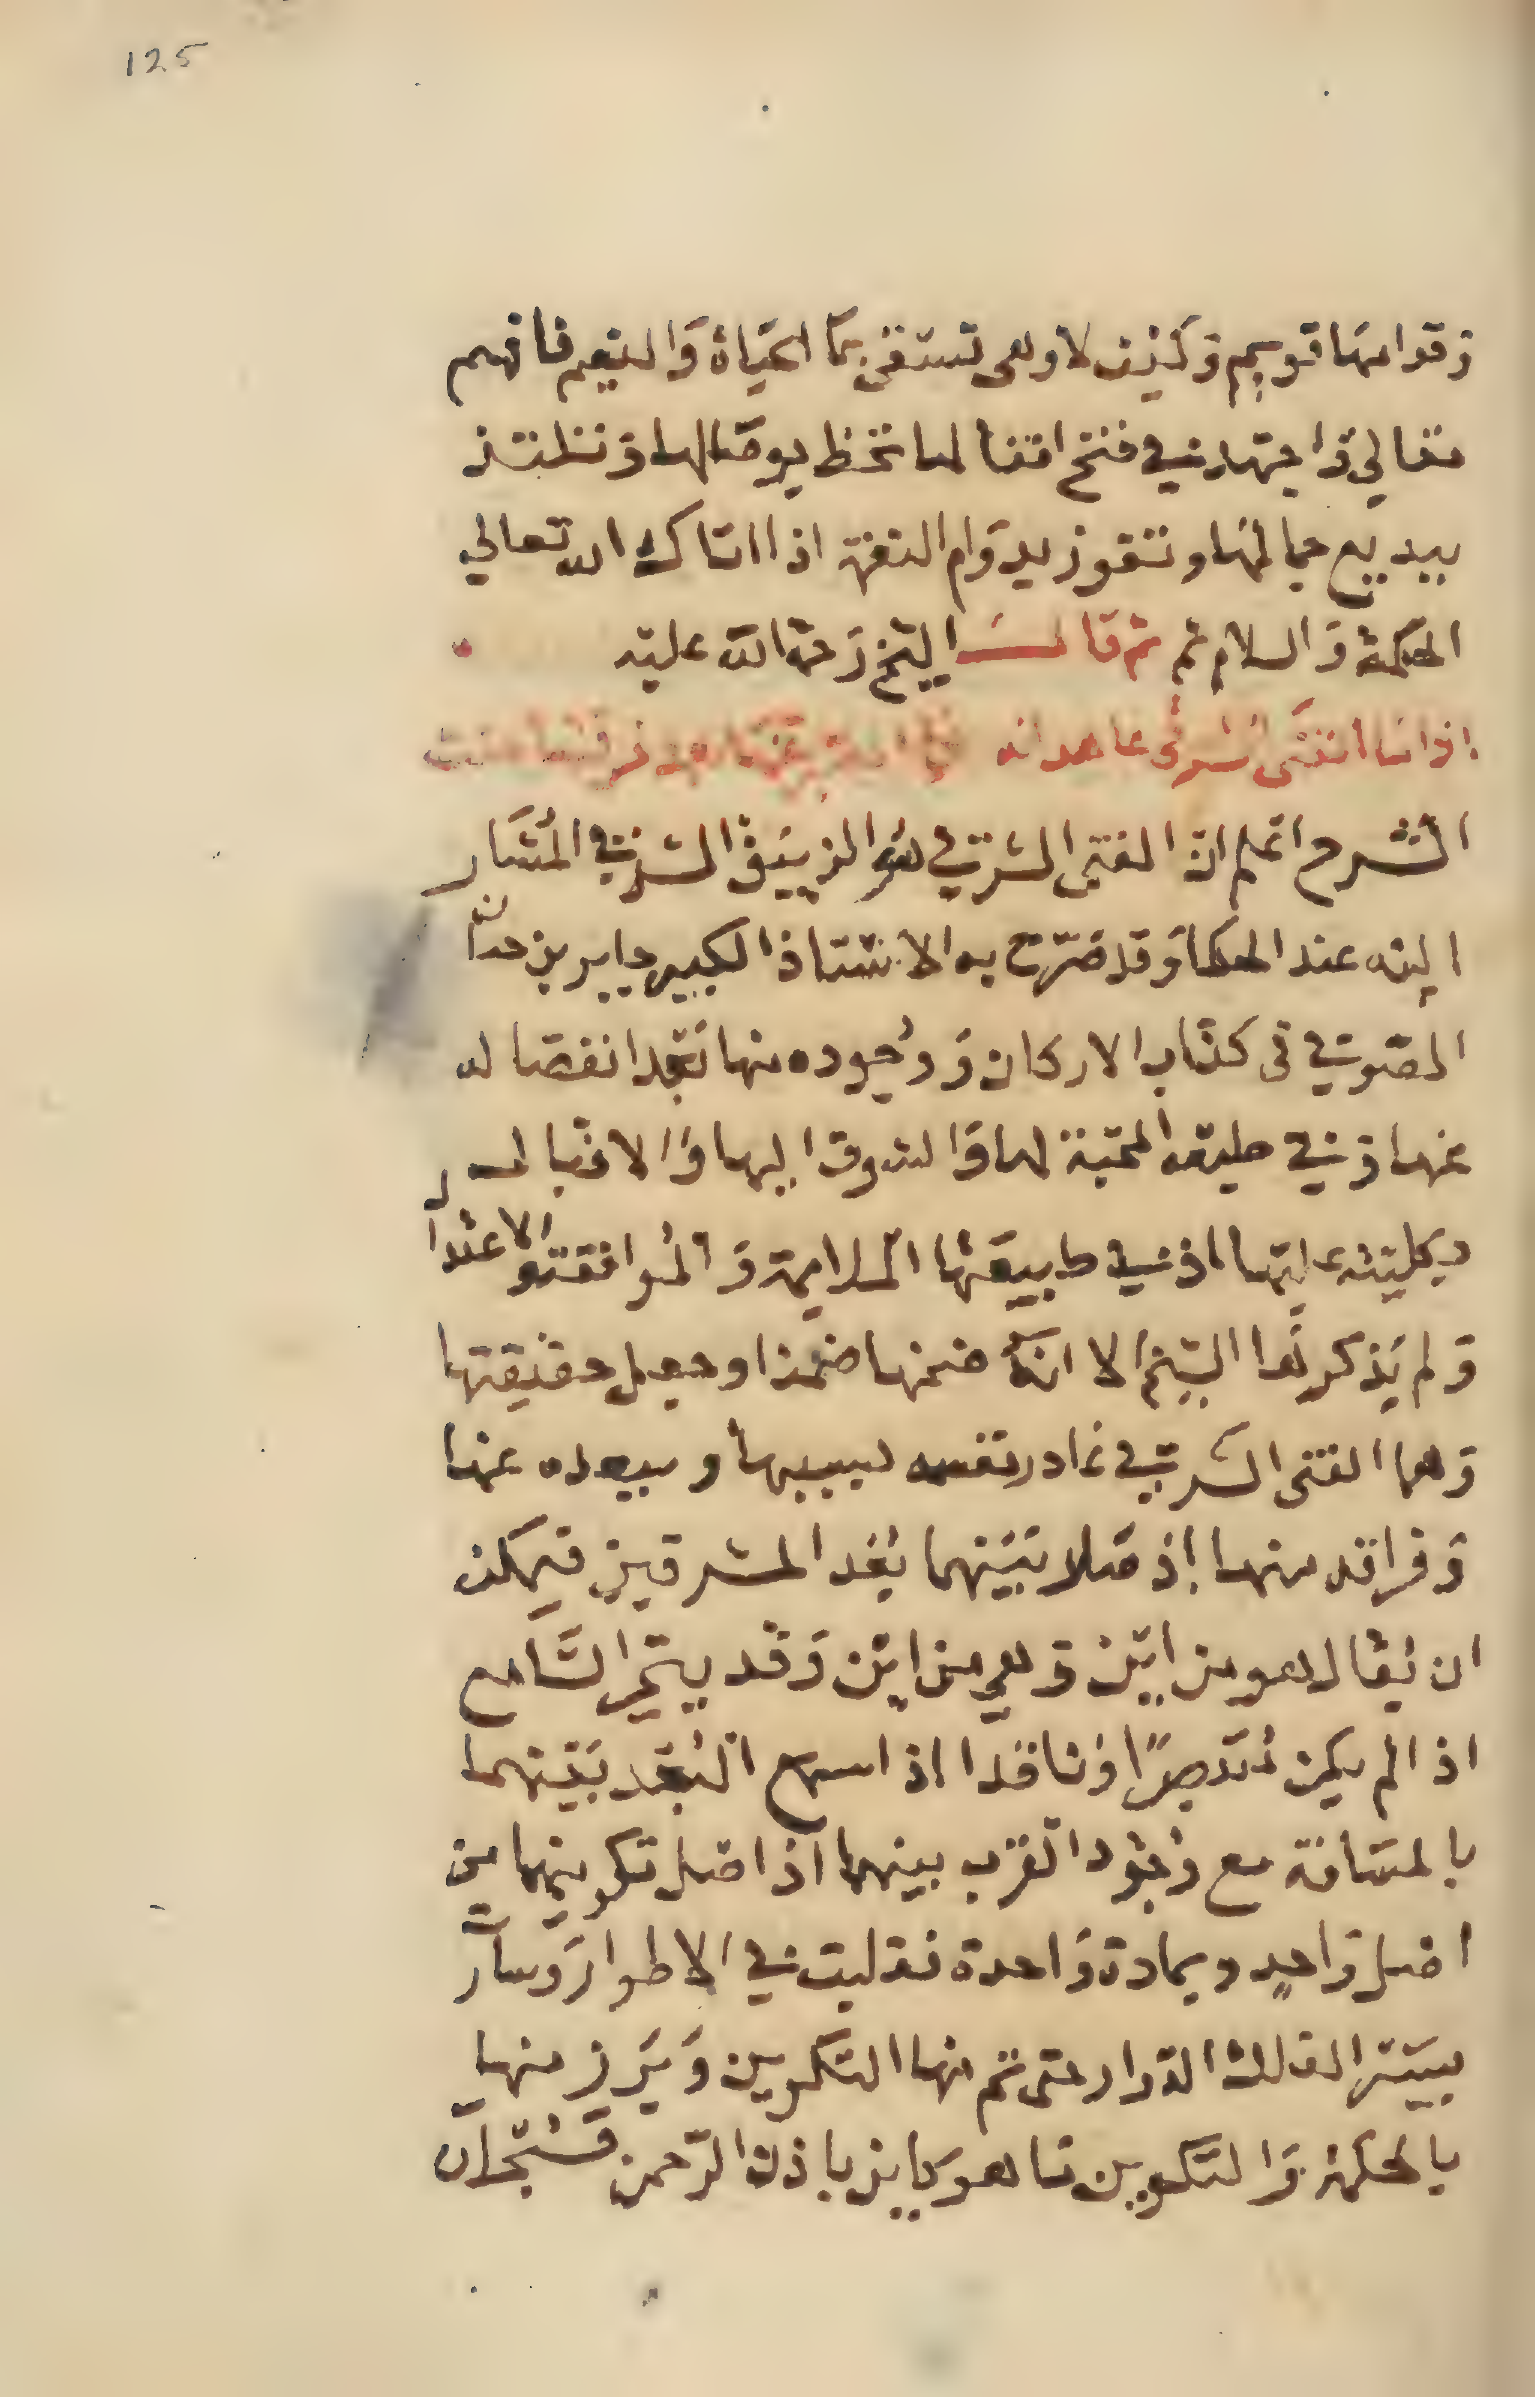 125
وقوامها قويم وكيف لا وهى تسقى بما الحياة والنعيم فافهم
مقالي واجتهد في فتح اقفالها تحظ بوصالها وتلتذ
ببديع جمالها وتفوز بدوام النعمة اذا اتاك الله تعالي
الحكمة والسلام ثم قال الشيخ رحمة الله عليه
اذا ما الفتى الشرقى عاهد انه
الشرح اعلم ان الفتى الشرقي هو الزيبق الشرقي المشار
اليه عند الحكما وقد صرح به الاستاذ الكبير جابر بن حيان
الصوفي فى كتاب الاركان ووجوده منها بعد انفصاله
عنها وفي طبعه المحبة لها والشوق اليها والاقبال
بكليته عليها اذ في طبيعتها الملايمة والموافقة والاعتدال
ولم يذكرها الشيخ الا انه ضمنها ضمنا وجعل حقيقتها
وهما الفتى الشرقي غادر نفسه لسببها وببعده عنها
وفراقه منها اذ صار بينهما بعد المشرقين فيمكن
ان يقال هو من اين وهي من اين وقد يتحير السامع
اذا لم يكن متبصرًا وناقدا اذا سمع البعد بينهما
بالمسافة مع وجود القرب بينهما اذ اصل تكوينهما من
اصل واحدٍ وبمادة واحدة تقلبت في الاطوار وسارت
بسير الفلك الدوار حتى تم منها التكوين وبرز منها
بالحكمة والتكوين ما هو كاين باذن الرحمن فسبحان